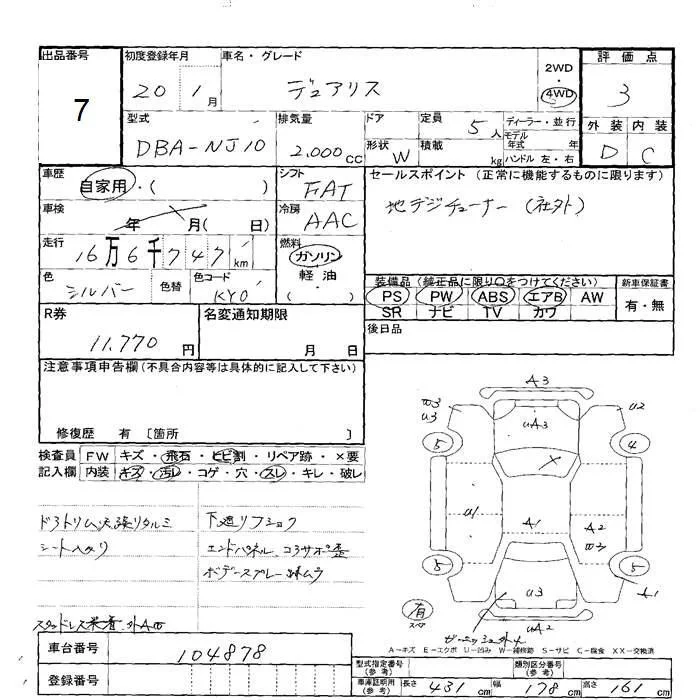 出品番号 初度登録年月 車名・グレード 評価点
7 20 1月 デュアリス 2WD・4WD 3
型式 排気量 ドア 定員 ディーラー・並行 外装 内装
DBA-NJ10 2.000cc 5人 モデル年式 年 D C
形状 W 積載 kg ハンドル 左・右
車歴 シフト セールスポイント (正常に機能するものに限ります)
自家用・( ) FAT 地デジチューナー (社外)
車検 冷房
年 月( 日) AAC
走行 燃料
16万6千747km ガソリン
色 色替 色コード 軽油 装備品 (純正品に限り○をつけてください) 新車保証書
シルバー KY0 ( ) PS PW ABS エアB AW 有・無
SR ナビ TV カワ
R券 名変通知期限 後日品
11.770円 月 日
注意事項申告欄(不具合内容等は具体的に記入して下さい)
修復歴 有 〔箇所 〕
検査員 FW キズ・飛石・ヒビ割・リペア跡・×要
記入欄 内装 キズ・汚レ・コゲ・穴・スレ・キレ・破レ
下廻りフショク
シート
エンドパネル、コアサポ歪
ボデースプレー
スタッドレス
A3
W3
U3
U2
UA3
5 4
U1 A1 A2
W3
5 5
U3 A1
有
スペア
UA2
A-キズ E-エクボ U-凹み W-補修跡 S-サビ C-腐食 XX-交換済
車台番号 104878
登録番号
型式指定番号(参考) 類別区分番号(参考)
車庫証明用(参考) 長さ 431cm 幅 178cm 高さ 161cm